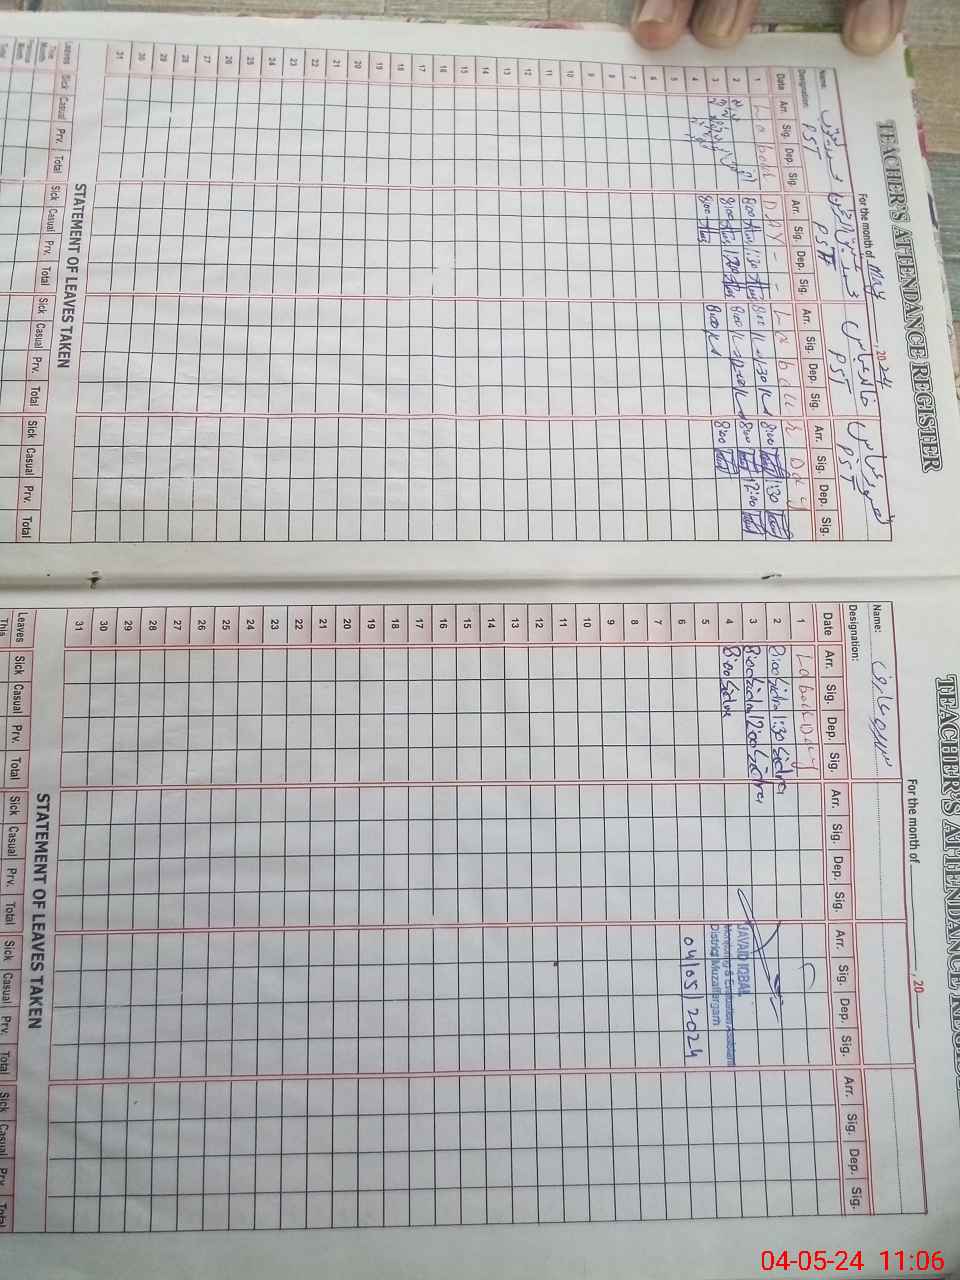 TEACHER'S ATTENDANCE REGISTER
For the month of May, 2024
Name:
Designation: PST PST PST PST
Date Arr. Sig. Dep. Sig. Arr. Sig. Dep. Sig. Arr. Sig. Dep. Sig. Arr. Sig. Dep. Sig.
1 Labour DAY - - Labour Day
2 8:00 1:30 8:00 1:30 8:00 1:30
3 8:00 12:00 8:00 12:00 8:00 12:00
4 8:00 8:00 8:00
5
6
7
8
9
10
11
12
13
14
15
16
17
18
19
20
21
22
23
24
25
26
27
28
29
30
31
STATEMENT OF LEAVES TAKEN
Leaves Sick Casual Prv. Total Sick Casual Prv. Total Sick Casual Prv. Total Sick Casual Prv. Total
This Month
Previous Month
Total
TEACHER'S ATTENDANCE REGISTER
For the month of , 20
Name:
Designation:
Date Arr. Sig. Dep. Sig. Arr. Sig. Dep. Sig. Arr. Sig. Dep. Sig. Arr. Sig. Dep. Sig.
1 Labour Day
2 8:00 Sidra 1:30 Sidra
3 8:00 Sidra 12:00 Sidra
4 8:00 Sidra
JAVAID IQBAL
Monitoring & Evaluation Assistant
District Muzaffargarh
04/05/2024
5
6
7
8
9
10
11
12
13
14
15
16
17
18
19
20
21
22
23
24
25
26
27
28
29
30
31
STATEMENT OF LEAVES TAKEN
Leaves Sick Casual Prv. Total Sick Casual Prv. Total Sick Casual Prv. Total Sick Casual Prv. Total
This
04-05-24 11:06